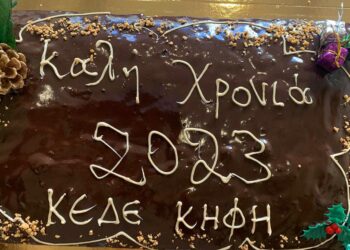 Καλη Χρονιά
2023
ΚΕΔΕ ΚΗΦΗ